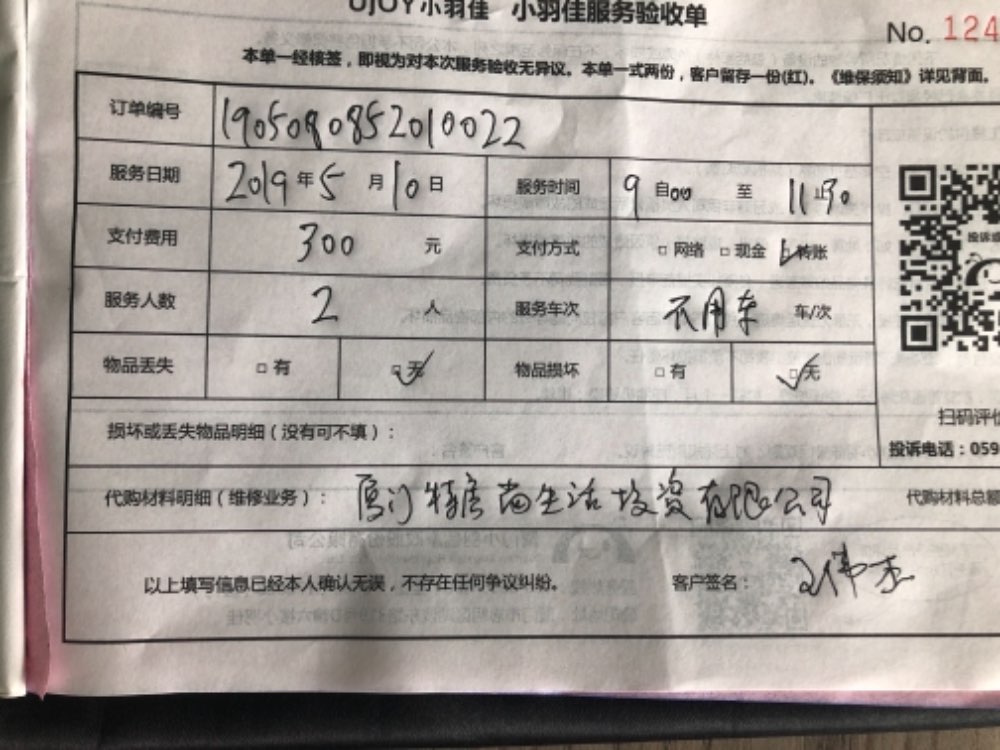 UJOY小羽佳 小羽佳服务验收单
No. 124
本单一经核签，即视为对本次服务验收无异议。本单一式两份，客户留存一份(红)。《维保须知》详见背面。
订单编号 1905080852010022
服务日期 2019年5月10日 服务时间 9自00至11止30
支付费用 300元 支付方式 □网络 □现金 □转账
服务人数 2人 服务车次 不用车 车/次
物品丢失 □有 □无 物品损坏 □有 □无
损坏或丢失物品明细（没有可不填）：
扫码评价
投诉电话：059
代购材料明细（维修业务）：厦门特房尚生活投资有限公司
代购材料总额
以上填写信息已经本人确认无误，不存在任何争议纠纷。 客户签名：